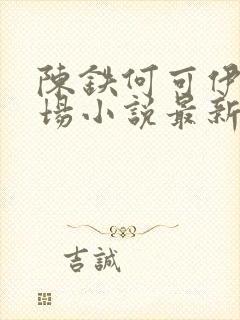 陳鉄何可伊
場小説最新
吉誠